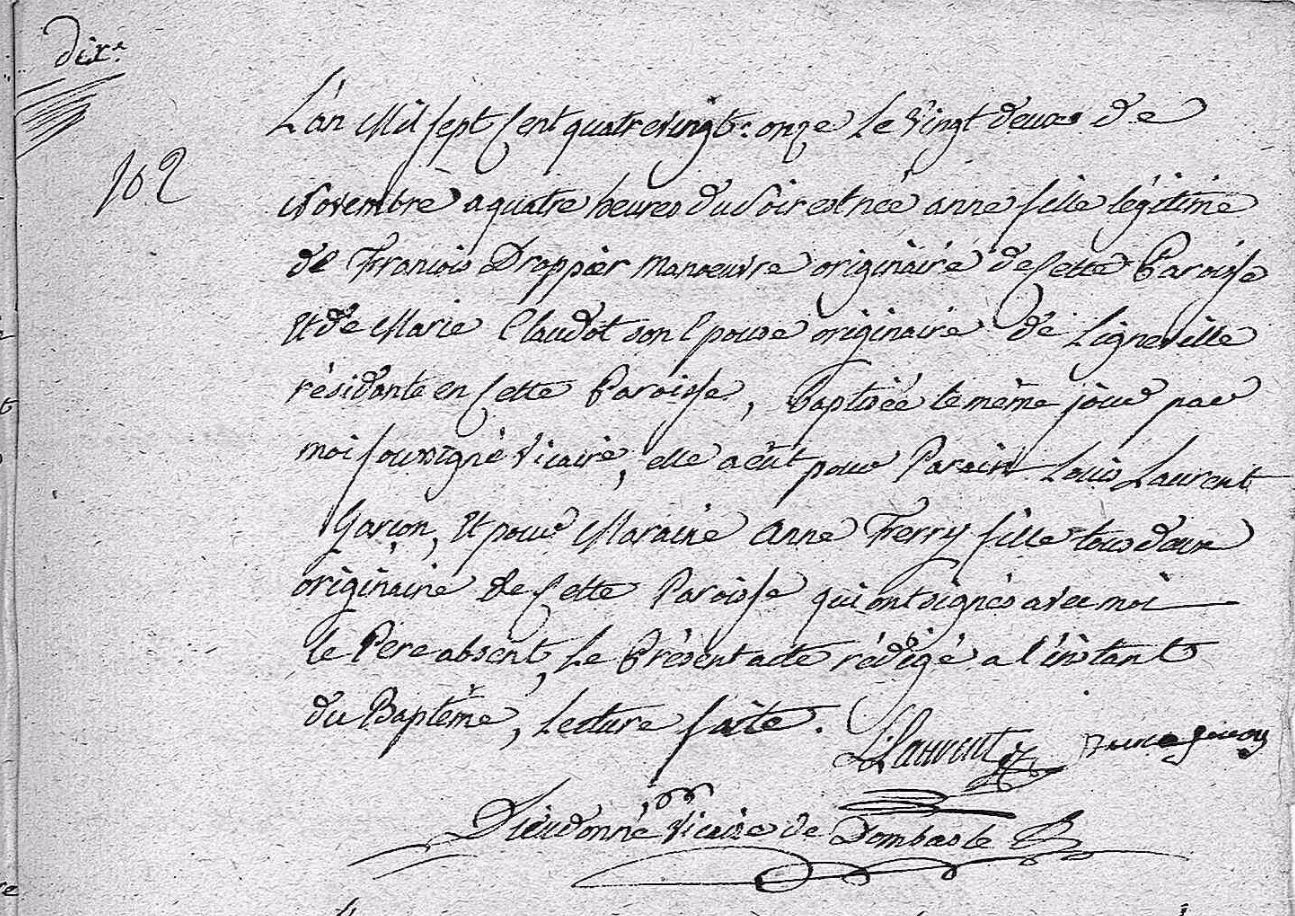 dixe
102
L'an Mil sept Cent quatrevingt: onze Le vingt deux de
Novembre a quatre heures du Soir est née anne fille légitime
de Francois Drappier Manoeuvre originaire de Cette Paroisse
Et de Marie Claudot son Epouse originaire de Ligneville
résidante en Cette Paroisse, Baptisée le même jour par
moi soussigné Vicaire, elle a eût pour Parain Louis Laurent
Garçon, Et pour Maraine Anne Ferry fille tous deux
originaire de Cette Paroisse qui ont signés avec moi
le Père absent, Le Présent acte rédigé a l'instant
du Baptême, Lecture faite.
L Laurent
Dieudonné Vicaire de Dombasle